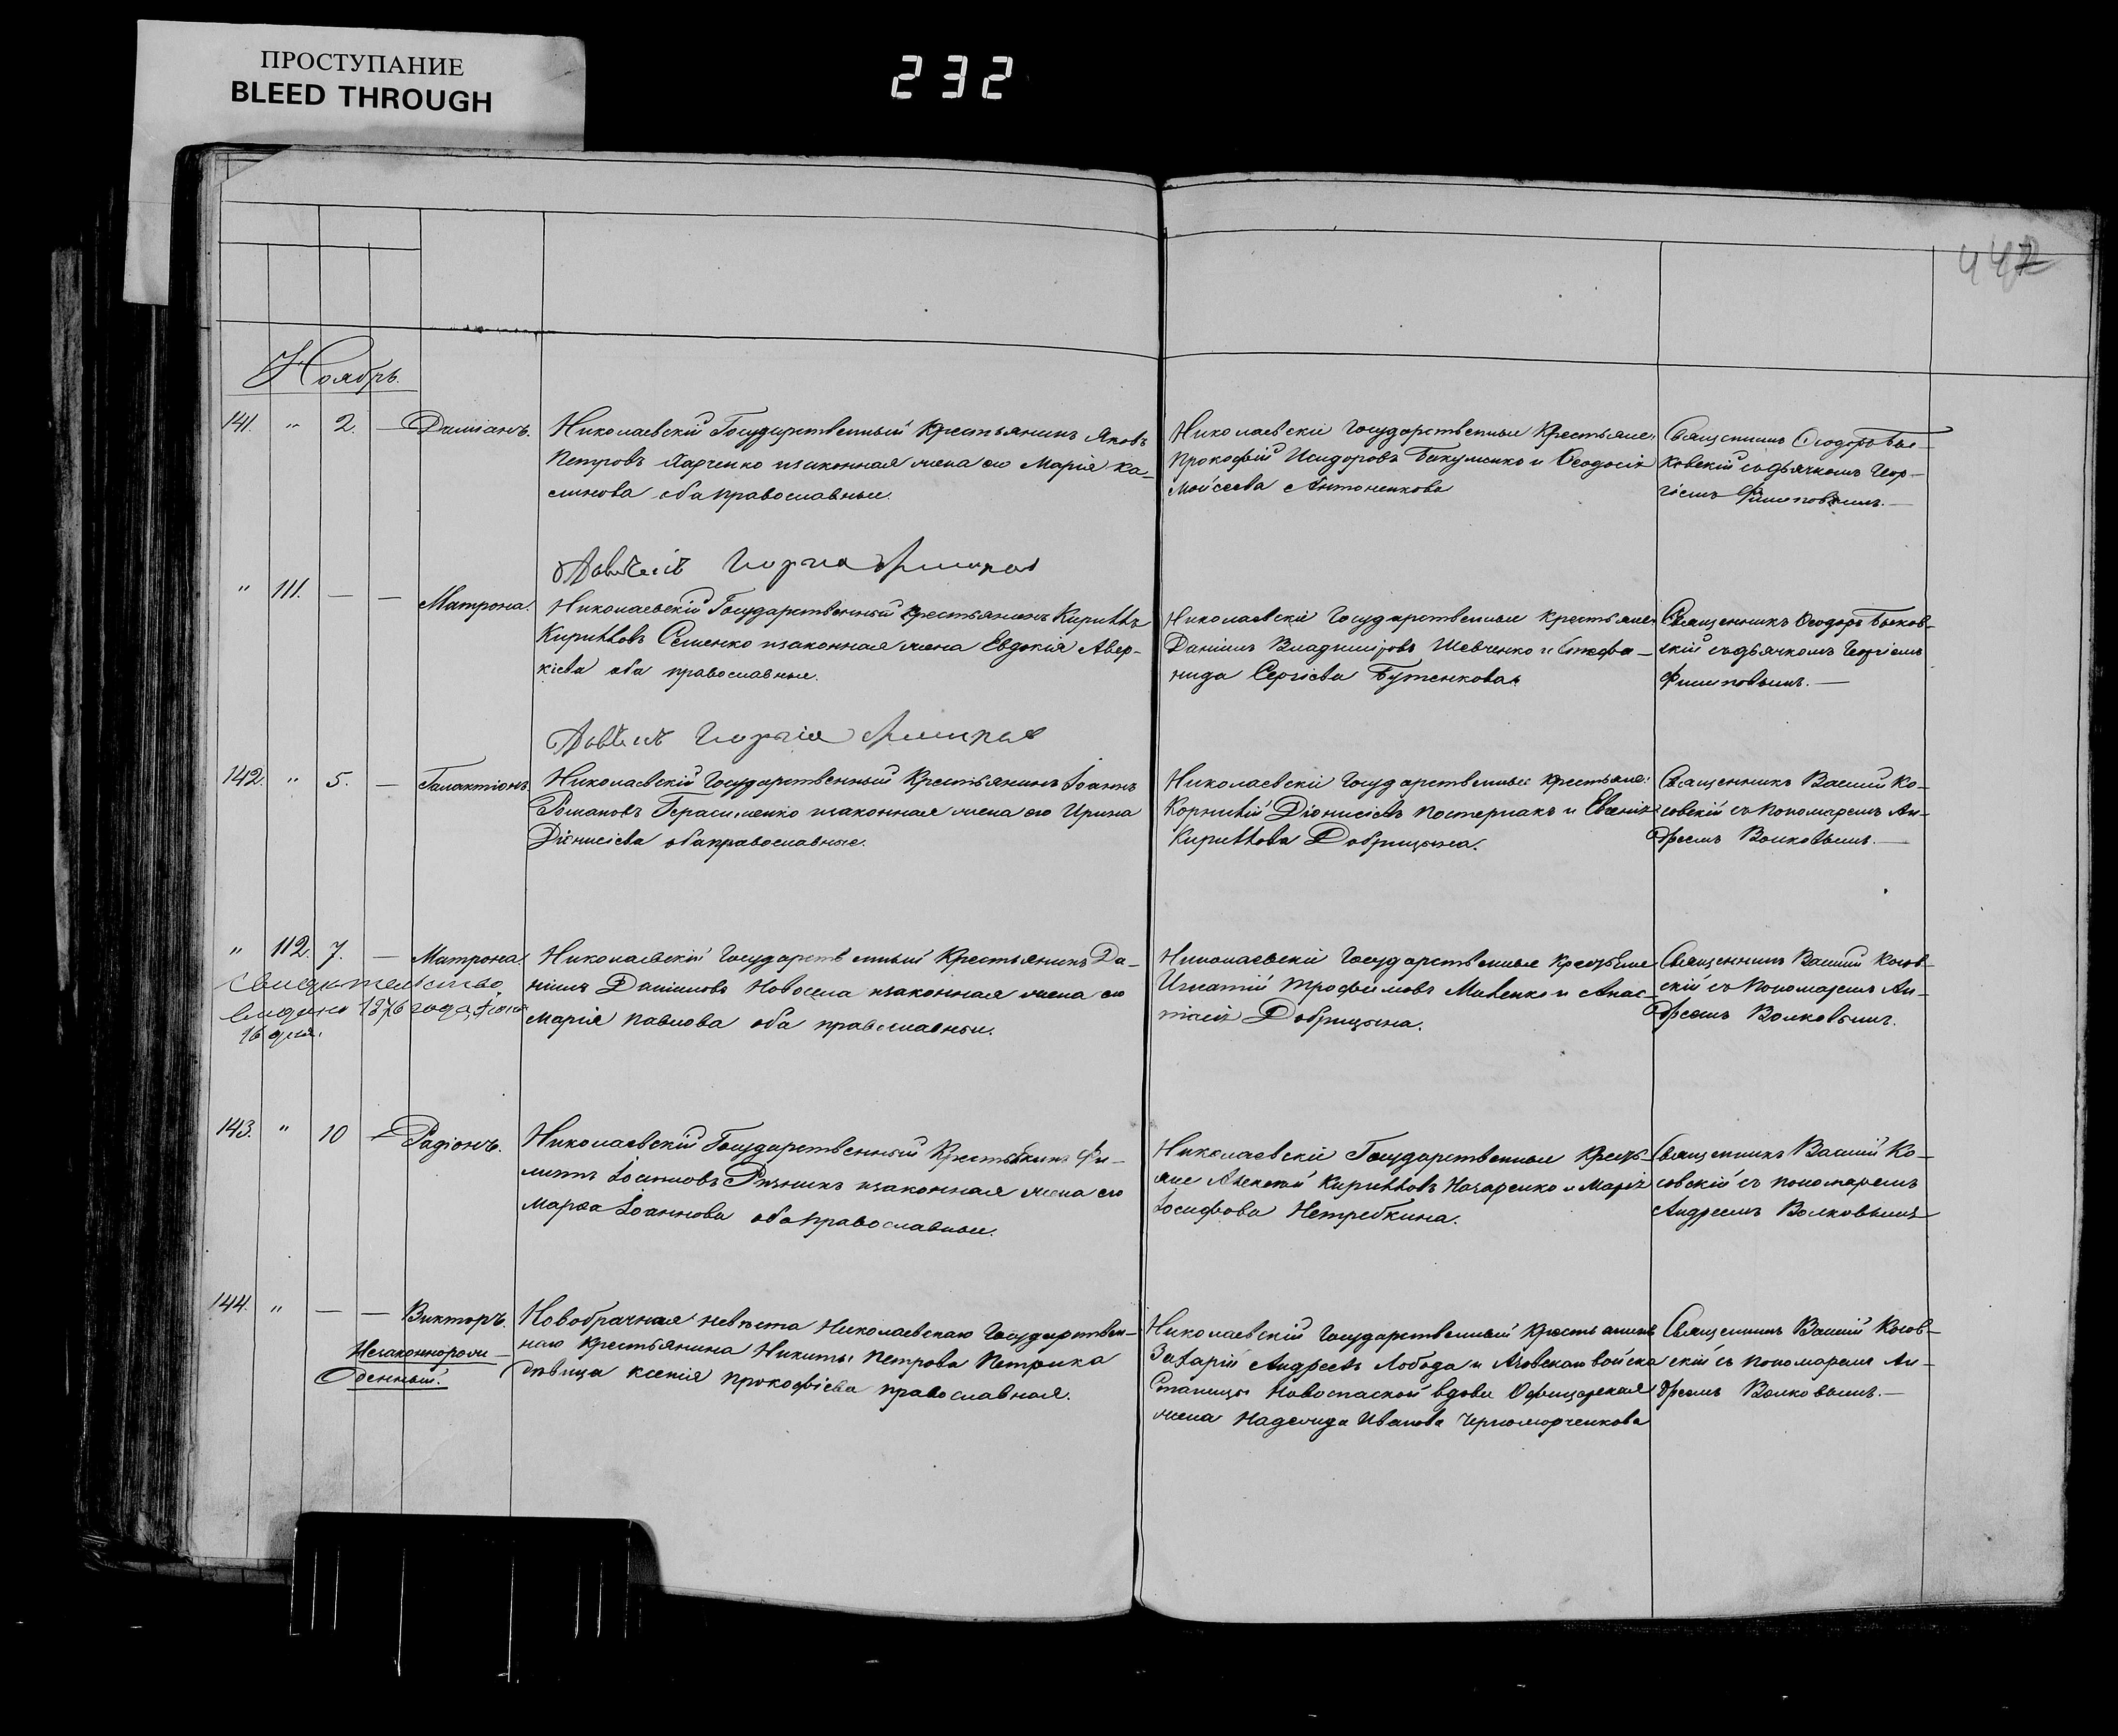 ПРОСТУПАНИЕ
BLEED THROUGH
232
442
Ноябрь.
141. " 2. — Даміанъ.
Николаевскій Государственный Крестьянинъ Яковъ
Петровъ Харченко изаконная жена его Марія Ка-
линова оба православные.
Николаевскіе Государственные Крестьяне:
Прокофій Исидоровъ Бакуменко и Ѳеодосія
Моисеева Антоненкова
Священникъ Ѳеодоръ Бы-
ковскій съ дьячкомъ Геор-
гіемъ Филиповымъ. —
" 111. — — Матрона.
Николаевскій Государственный Крестьянинъ Кириллъ
Кирилловъ Семенко изаконная жена Евдокія Авер-
кіева оба православные.
Николаевскіе Государственные крестьяне
Даніилъ Владиміровъ Шевченко и Стефа-
нида Сергіева Бутенкова
Священникъ Ѳеодоръ Быков-
скій съ дьячкомъ Георгіемъ
Филиповымъ. —
142. " 5. — Галактіонъ.
Николаевскій Государственный Крестьянинъ Іоаннъ
Романовъ Герасименко изаконная жена его Ирина
Діонисіева оба православные.
Николаевскіе Государственные крестьяне:
Корнилій Діонисіевъ Постернакъ и Евгенія
Кириллова Добрицына.
Священникъ Василій Ко-
совскій съ Пономаремъ Ан-
дреемъ Волковымъ. —
" 112. 7. — Матрона.
Свидѣтельство
выдано 1876 года,
16 дня.
Николаевскій Государственный Крестьянинъ Да-
ніилъ Даниловъ Новосела изаконная жена его
Марія Павлова оба православные.
Николаевскіе Государственные Крестьяне
Игнатій Трофимовъ Михенко и Анас-
тасія Добрицына.
Священникъ Василій Косов-
скій съ Пономаремъ Ан-
дреемъ Волковымъ.
143. " 10 — Радіонъ.
Николаевскій Государственный Крестьянинъ Фи-
липъ Іоанновъ Рѣзникъ изаконная жена его
Марѳа Іоаннова оба православные.
Николаевскіе Государственные Кресть-
яне Алексѣй Кирилловъ Назаренко и Марія
Іосифова Нетребкина.
Священникъ Василій Ко-
совскій съ пономаремъ
Андреемъ Волковымъ
144. " — — Викторъ.
Незаконнорож-
денный.
Новобрачная невѣста Николаевскаго Государствен-
наго Крестьянина Никиты Петрова Петрика
дѣвица Ксенія Прокофіева православная.
Николаевскій Государственный Крестьянинъ
Захарій Андреевъ Лобода и Азовскаго войска
Станицы Новоспаской вдова Офицерская
жена Надежда Иванова Черноморченкова
Священникъ Василій Косов-
скій съ пономаремъ Ан-
дреемъ Волковымъ. —